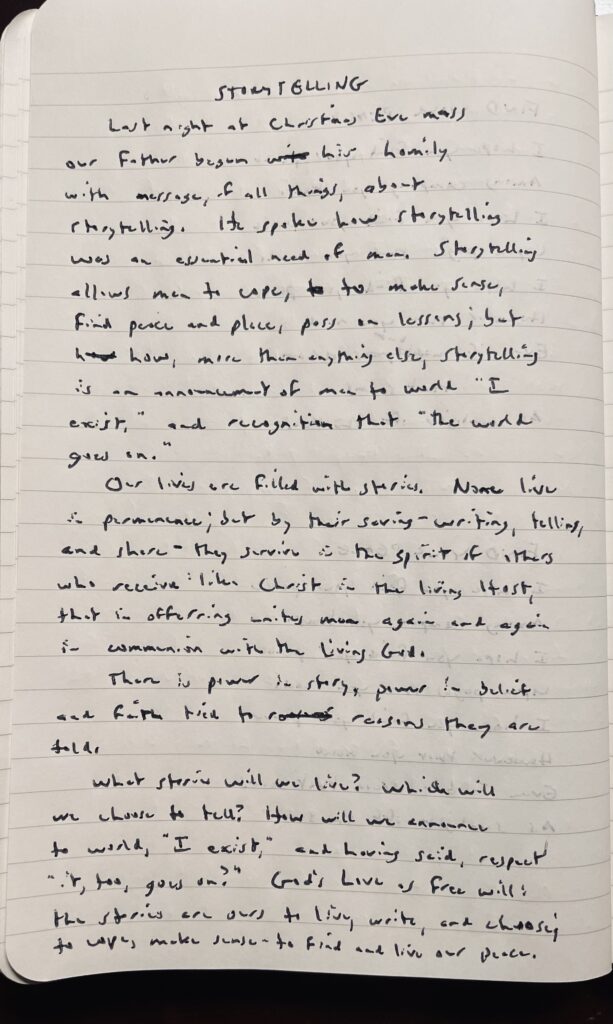 STORYTELLING
Last night at Christmas Eve mass
our Father began his homily
with message, of all things, about
storytelling. He spoke how storytelling
was an essential need of man. Storytelling
allows men to cope, to make sense,
find peace and place, pass on lessons; but
how, more than anything else, storytelling
is an announcement of men to world "I
exist," and recognition that "the world
goes on."
Our lives are filled with stories. None live
in permanence; but by their saving-writing, telling,
and share- they survive in the spirit of others
who receive: like Christ in the living Host,
that in offerring unites man again and again
in communion with the living God.
There is power in story, power in belief
and faith tied to reasons they are
told.
What stories will we live? Which will
we choose to tell? How will we announce
to world, "I exist," and having said, respect
"it, too, goes on?" God's Love is free will:
the stories are ours to live, write, and choosing
to cope, make sense-to find and live our peace.